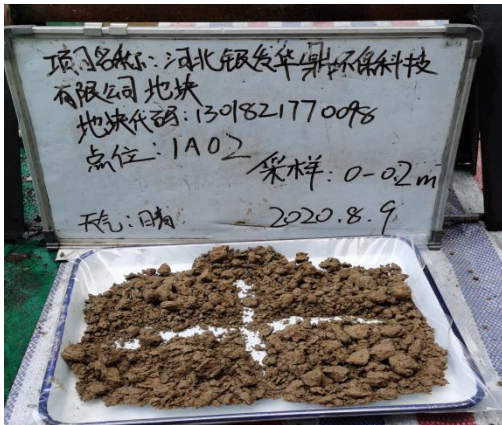 项目名称:河北银发华鼎环保科技
有限公司地块
地块代码:1301821770098
点位:1A02
采样:0-0.2m
天气:晴
2020.8.9